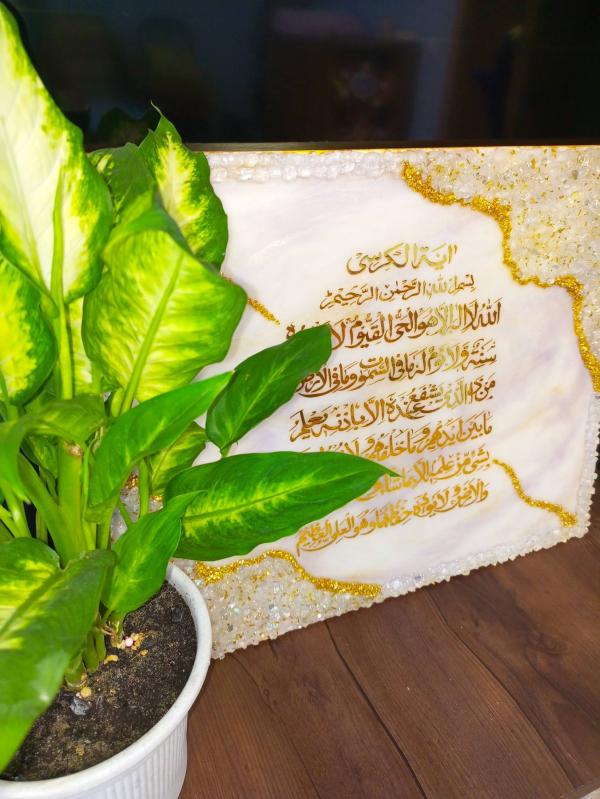 اية الكرسي
بسم الله الرحمن الرحيم
الله لا اله الا هو الحي القيوم لا
سنة ولا نوم له ما في السموت وما في الارض
من ذا الذي يشفع عنده الا باذنه يعلم
ما بين ايديهم وما خلفهم ولا
بشيء من علمه الا بما شاء
والارض ولا يوده حفظهما وهو العلي العظيم